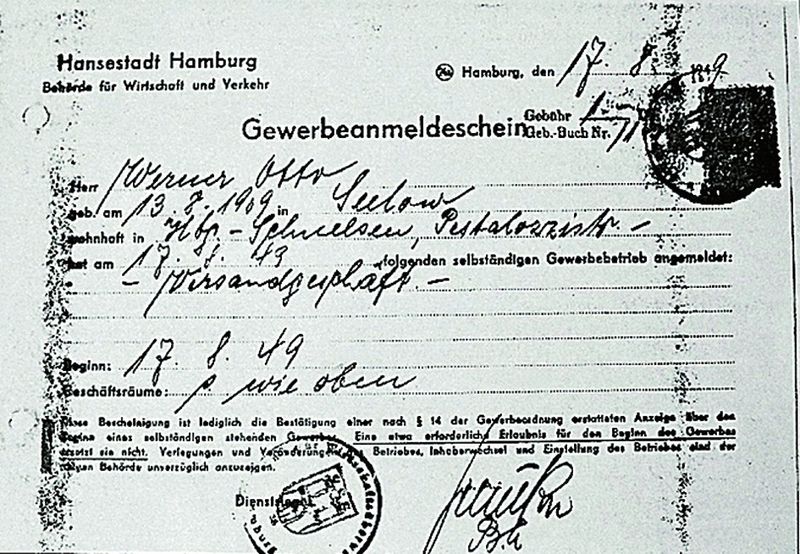 Hansestadt Hamburg
Behörde für Wirtschaft und Verkehr
Hamburg, den 17. 8. 1949
Gewerbeanmeldeschein
Gebühr 1
Geb.-Buch Nr.
Herr Werner Otto
geb. am 13 8 1909 in Seelow
wohnhaft in Hbg - Schnelsen, Pestalozzistr. -
hat am 17. 8. 49 folgenden selbständigen Gewerbebetrieb angemeldet:
- Versandgeschäft -
Beginn: 17. 8. 49
Geschäftsräume: s wie oben
Diese Bescheinigung ist lediglich die Bestätigung einer nach § 14 der Gewerbeordnung erstatteten Anzeige über den
Beginn eines selbständigen stehenden Gewerbes. Eine etwa erforderliche Erlaubnis für den Beginn des Gewerbes
ersetzt sie nicht. Verlegungen und Veränderungen des Betriebes, Inhaberwechsel und Einstellung des Betriebes sind der
Behörde unverzüglich anzuzeigen.
Dienstsiegel